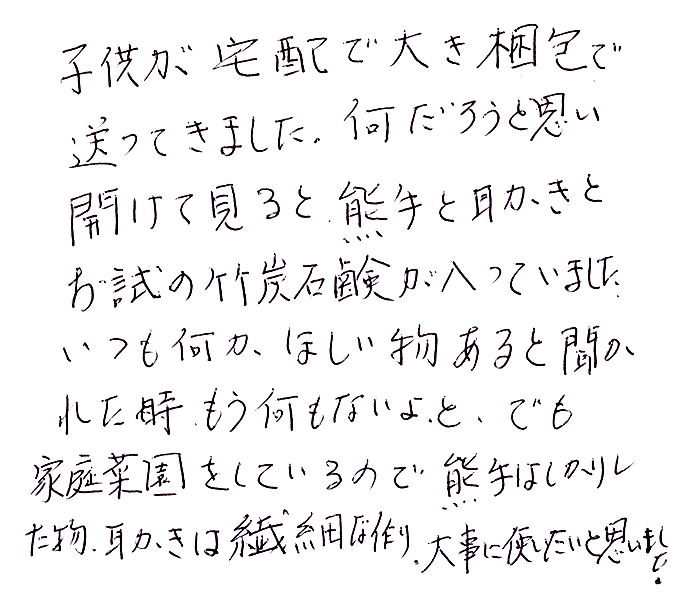 子供が宅配で大き梱包で
送ってきました。何だろうと思い
開けて見ると、熊手と耳かきと
お試の竹炭石鹸が入っていました
いつも何か、ほしい物あると聞か
れた時、もう何もないよ、と、でも
家庭菜園をしているので熊手はしかりし
た物、耳かきは繊細な作り、大事に使したいと思いました!